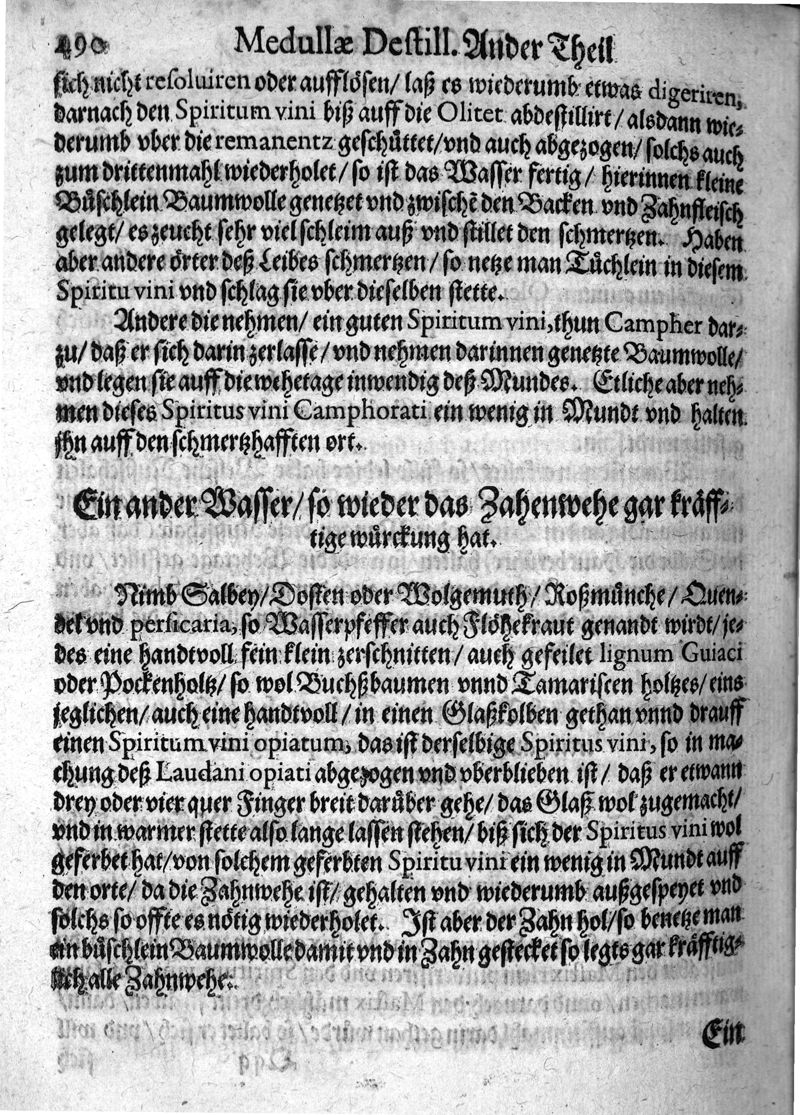 490 Medullæ Destill. Ander Theil
sich nicht resoluiren oder aufflösen/ laß es wiederumb etwas digeriren,
darnach den Spiritum vini biß auff die Olitet abdestillirt/ alsdann wie-
derumb vber die remanentz geschüttet/ vnd auch abgezogen/ solchs auch
zum drittenmahl wiederholet/ so ist das Wasser fertig/ hierinnen kleine
Büschlein Baumwolle genetzet vnd zwischẽ den Backen vnd Zahnfleisch
gelegt/ es zeucht sehr viel schleim auß vnd stillet den schmertzen. Haben
aber andere örter deß Leibes schmertzen/ so netze man Tüchlein in diesem
Spiritu vini vnd schlag sie vber dieselben stette.
Andere die nehmen/ ein guten Spiritum vini, thun Campher dar-
zu/ daß er sich darin zerlasse/ vnd nehmen darinnen genetzte Baumwolle/
vnd legen sie auff die wehetage inwendig deß Mundes. Etliche aber neh-
men dieses Spiritus vini Camphorati ein wenig in Mundt vnd halten
jhn auff den schmertzhafften ort.
Ein ander Wasser/ so wieder das Zahenwehe gar kräff-
tige würckung hat.
Nimb Salbey/ Dosten oder Wolgemuth/ Roßmünche/ Quen-
del vnd persicaria, so Wasserpfeffer auch Flöhekraut genandt wirdt/ je-
des eine handtvoll fein klein zerschnitten/ auch gefeilet lignum Guiaci
oder Pockenholtz/ so wol Buchßbaumen vnnd Tamariscen holtzes/ eins
jeglichen/ auch eine handtvoll/ in einen Glaßkolben gethan vnnd drauff
einen Spiritum vini opiatum, das ist derselbige Spiritus vini, so in ma-
chung deß Laudani opiati abgezogen vnd vberblieben ist/ daß er etwann
drey oder vier quer Finger breit darüber gehe/ das Glaß wol zugemacht/
vnd in warmer stette also lange lassen stehen/ biß sich der Spiritus vini wol
geferbet hat/ von solchem geferbten Spiritu vini ein wenig in Mundt auff
den orte/ da die Zahnwehe ist/ gehalten vnd wiederumb außgespeyet vnd
solchs so offte es nötig wiederholet. Ist aber der Zahn hol/ so benetze man
ein büschlein Baumwolle damit vnd in Zahn gestecket so legts gar kräfftig-
lich alle Zahnwehe.
Ein